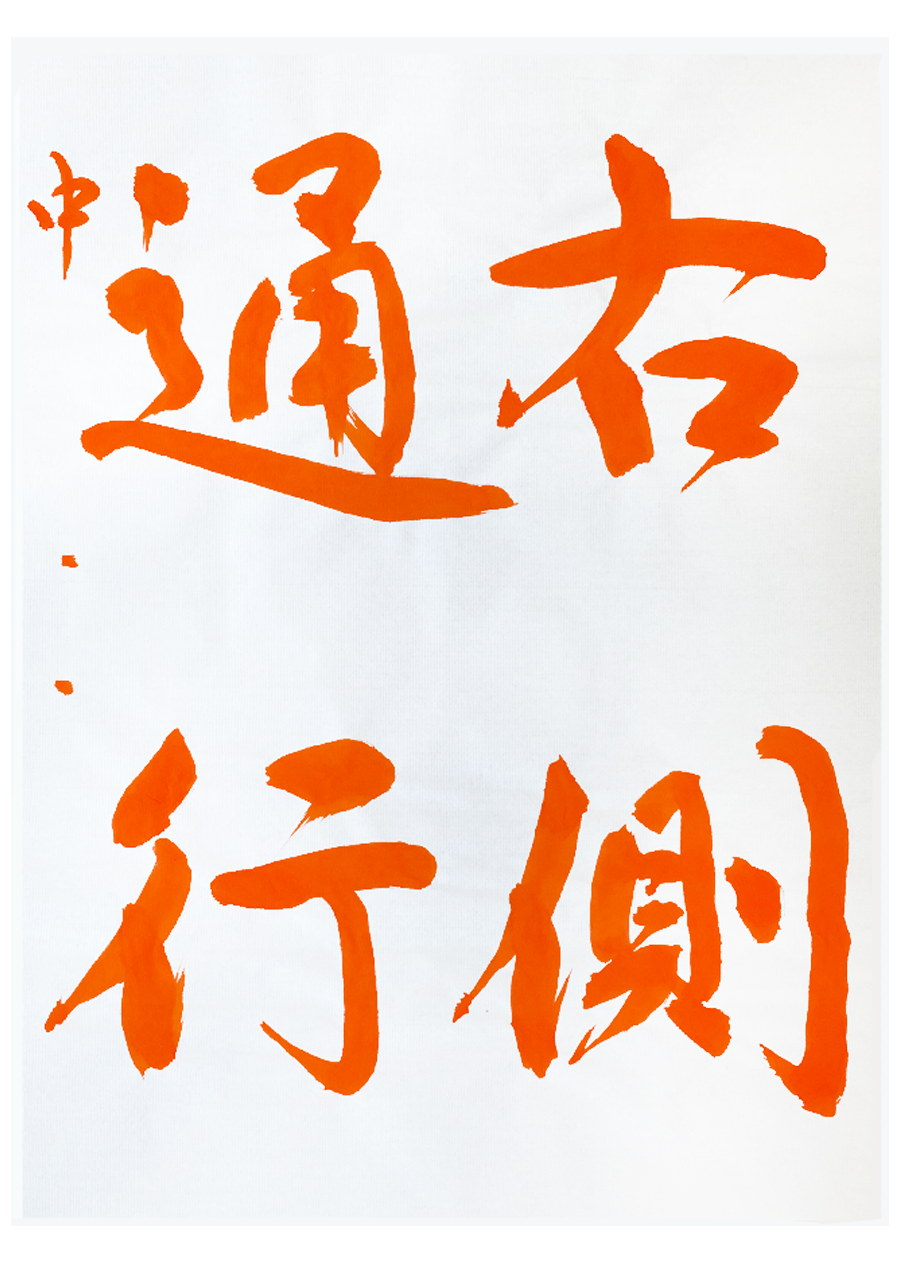 右側
通行
中